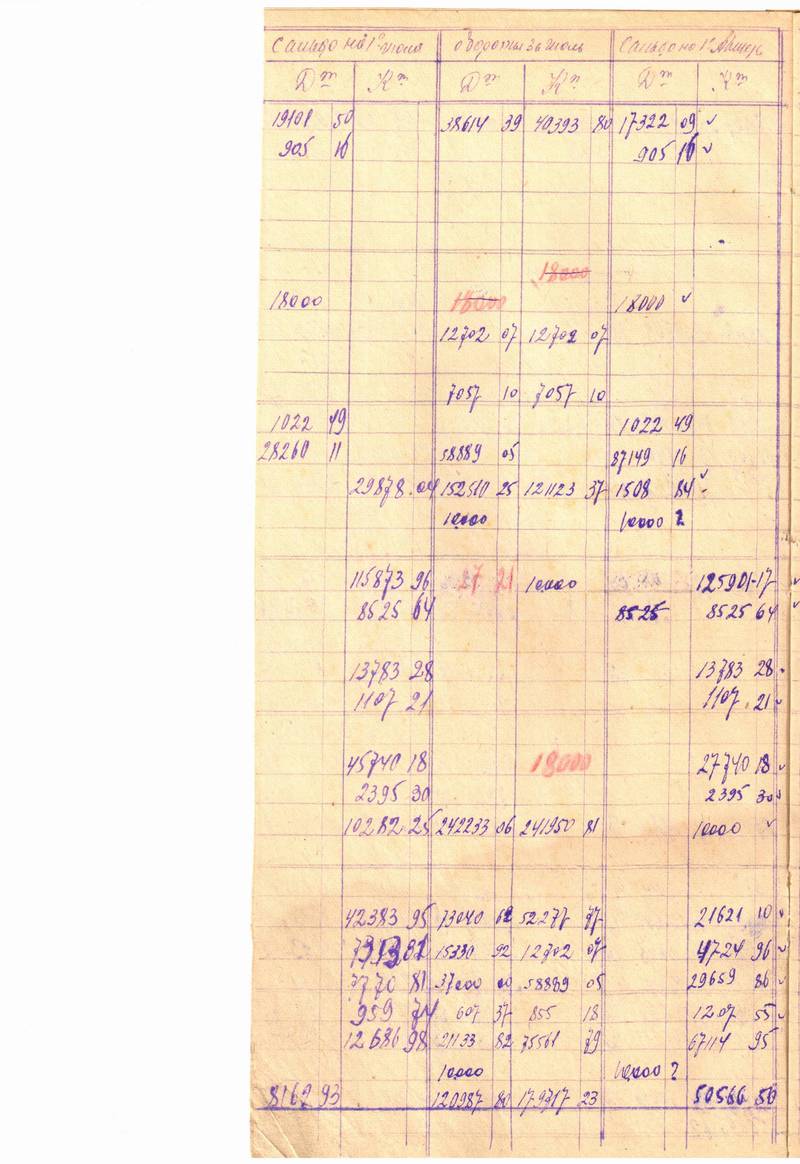 Сальдо на 1е июля обороты за июль Сальдо на 1е
Дт Кт Дт Кт Дт Кт
19101 50 38614 39 40393 80 17322 09
905 16 905 16
18000
18000 18000 18000
12702 07 12702 07
7057 10 7057 10
1022 49 1022 49
28260 11 58889 05 87149 16
29878.04 152510 25 121123 37 1508 84
10000 10000 ?
115873 96 27 21 10000 125901-17
8525 64 8525 8525 64
13783 28 13783 28
1107 21 1107 21
45740 18 18000 27740 18
2395 30 2395 30
10282 25 242233 06 241950 81 10000
42383 95 73040 62 52277 77 21621 10
15330 92 12702 07 4724 96
7770 81 37000 00 58889 05 29659 86
959 74 607 37 855 18 1207 55
12686 98 21133 82 75561 79 67114 95
10000 10000 ?
8162 93 120987 80 179717 23 50566 50